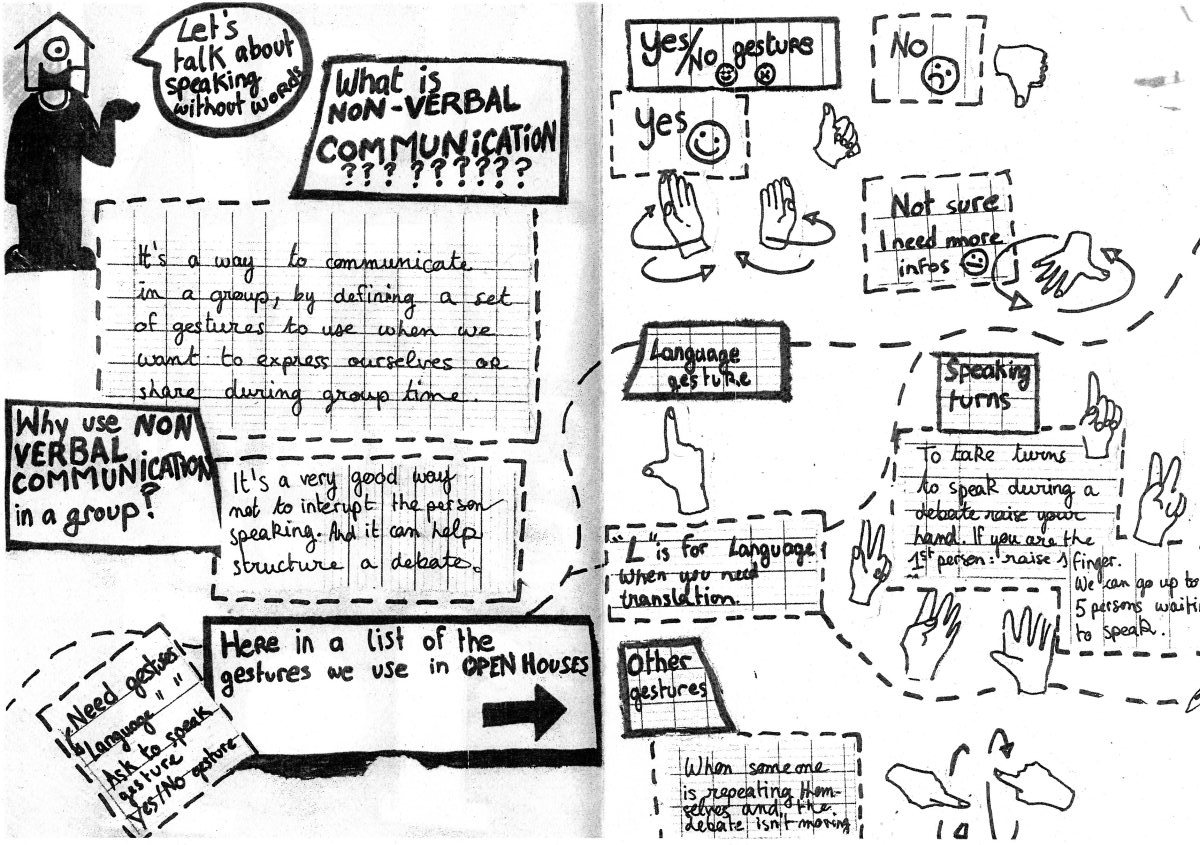 Let's
talk about
speaking
without words
What is
NON-VERBAL
COMMUNICATION
? ? ? ? ? ? ? ? ?
It's a way to communicate
in a group, by defining a set
of gestures to use when we
want to express ourselves or
share during group time.
Why use NON
VERBAL
COMMUNICATION
in a group?
It's a very good way
not to interupt the person
speaking. And it can help
structure a debate.
Here in a list of the
gestures we use in OPEN HOUSES
Need gestures
Language " "
Ask to speak
gesture
Yes/No gesture
Yes/No gesture
No
Yes
Not sure
I need more
infos
Language
gesture
"L" is for Language
when you need
translation.
Speaking
turns
To take turns
to speak during a
debate raise your
hand. If you are the
1st person: raise 1 finger.
We can go up to
5 persons waiting
to speak.
Other
gestures
When someone
is repeating them-
selves and the
debate isn't moving